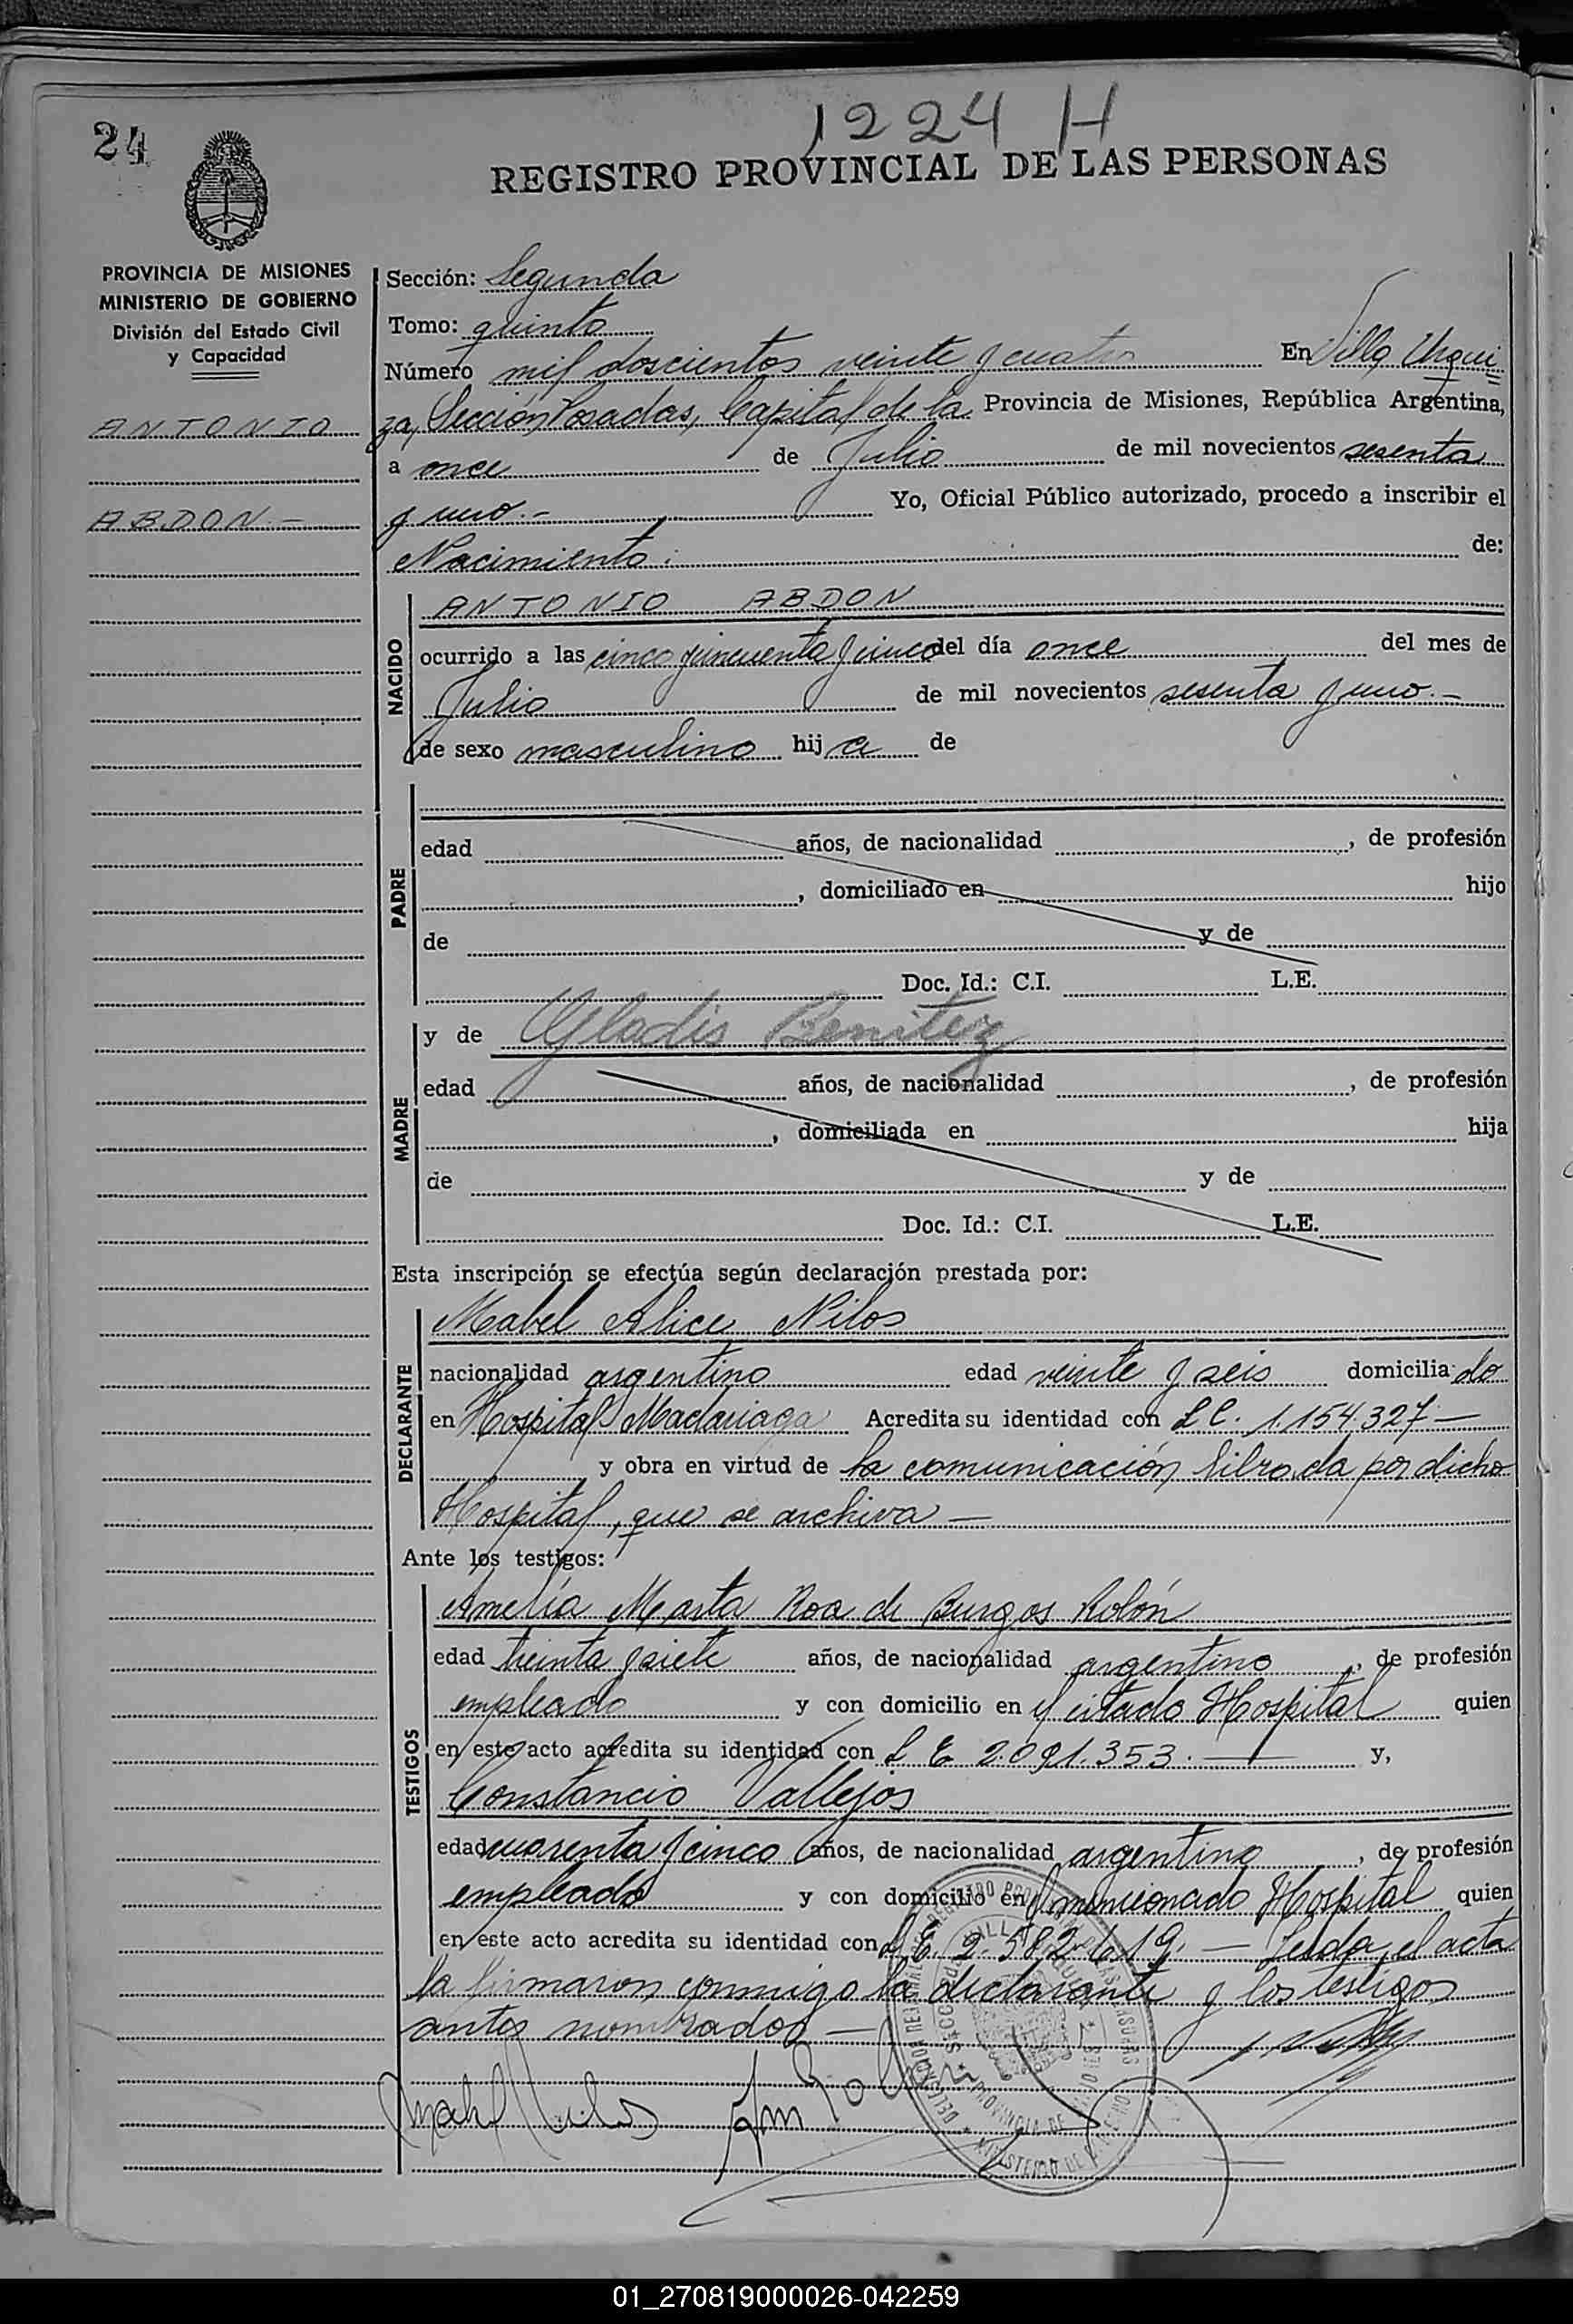 24
1224 H
REGISTRO PROVINCIAL DE LAS PERSONAS
PROVINCIA DE MISIONES
MINISTERIO DE GOBIERNO
División del Estado Civil
y Capacidad
ANTONIO
ABDON.-
Sección: Segunda
Tomo: quinto
Número mil doscientos veinte y cuatro En Villa Urqui
za, Sección Posadas, Capital de la Provincia de Misiones, República Argentina,
a once de Julio de mil novecientos sesenta
y uno.- Yo, Oficial Público autorizado, procedo a inscribir el
Nacimiento: de:
NACIDO
ANTONIO ABDON
ocurrido a las cinco y cincuenta y cinco del día once del mes de
Julio de mil novecientos sesenta y uno.-
de sexo masculino hij a de
PADRE
edad años, de nacionalidad , de profesión
, domiciliado en hijo
de y de
Doc. Id.: C.I. L.E.
MADRE
y de Gladis Benitez
edad años, de nacionalidad , de profesión
, domiciliada en hija
de y de
Doc. Id.: C.I. L.E.
Esta inscripción se efectúa según declaración prestada por:
DECLARANTE
Mabel Alice Nilos
nacionalidad argentino edad veinte y seis domicilia do
en Hospital Madariaga Acredita su identidad con L C. 1.154.327 —
y obra en virtud de la comunicación librada por dicho
Hospital, que se archiva —
Ante los testigos:
TESTIGOS
Amelia Marta Roa de Burgos Rolón
edad treinta y siete años, de nacionalidad argentino , de profesión
empleado y con domicilio en el citado Hospital quien
en este acto acredita su identidad con L E 2.091.353. — y,
Constancio Vallejos
edad cuarenta y cinco años, de nacionalidad argentino , de profesión
empleado y con domicilio en el mencionado Hospital quien
en este acto acredita su identidad con L E. 2.582.619. — Leída el acta
la firmaron conmigo la declarante y los testigos
antes nombrados —
01_270819000026-042259